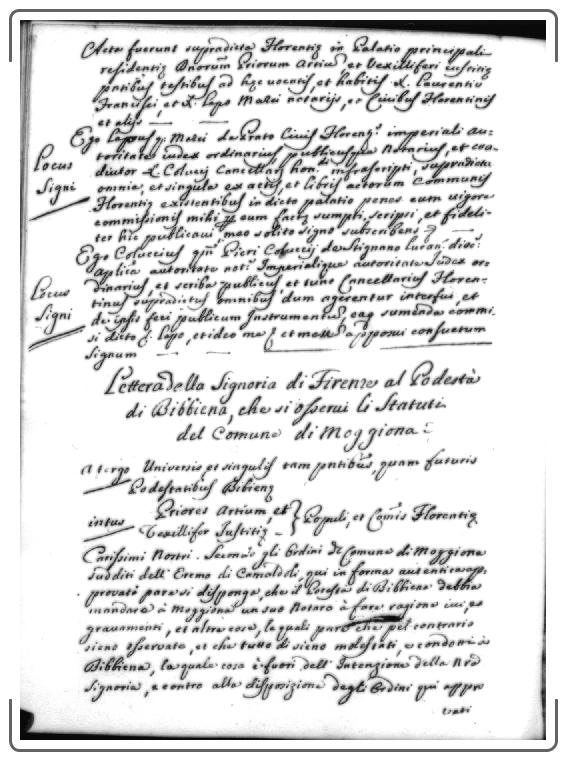 Acta fuerunt supradicta Florentiȩ in Palatio principali
residentiȩ Dnorum Priorum Artiu, et Vexilliferi iustitiȩ
pntibus testibus ad hȩc vocatis, et habitis S. Laurentio
Francisci, et S. Lapo Mazei notarijs, et Civibus Florentinis
et alijs
Ego Lapus q. Mazei de Prato Civis Florenqs imperiali au-
Locus toritate iudex ordinarius, publicusque Notarius, et coa-
Signi diutor S. Colucij Cancellarij hon. infrascripti, supradicta
omnia, et singula ex actis, et libris actorum Communis
Florentiȩ existentibus in dicto palatio penes eum vigore
commissionis mihi p eum factȩ sumpsi, scripsi, et fideli-
ter hic publicavi, meo solito signo subscribens
Ego Coluccius qm Pieri Coluccij de Stignano lucan. dioc:
Aplica autoritate not. Imperialique autoritate Judex or-
Locus dinarius, et scriba publicus et nunc Cancellarius Floren-
Signi tinus supradictus omnibus dum agerentur interfui, et
de ipsis feci publicum Instrumentu, eaq sumenda commi-
si dicto S. Lapo, et ideo me et meu apposui consuetum
signum
Lettera della Signoria di Firenze al Podestà
di Bibbiena, che si osserui li Statuti
del Comune di Moggiona
A tergo Universis et singulis tam pntibus, quam futuris
Podestatibus Bibienȩ
intus Priores Artium, et } Populi, et Comis Florentiȩ
Vexillifer Iustitiȩ
Carissimi Nostri. Secondo gli Ordini del Comune di Moggiona
sudditi dell' Eremo di Camaldoli, qui in forma autentica ap-
provati pare si disponga, che il Potestà di Bibbiena debba
mandare à Moggiona un suo Notaro à fare ragione ivi, et
gravamenti, et altre cose, le quali pare che pel contrario
sieno osservate, et che tutto dì sieno molestati, e condotti à
Bibbiena, la quale cosa è fuori dell' Intenzione della Nra
Signoria, e contro alla disposizione degli Ordini qui appro
vati